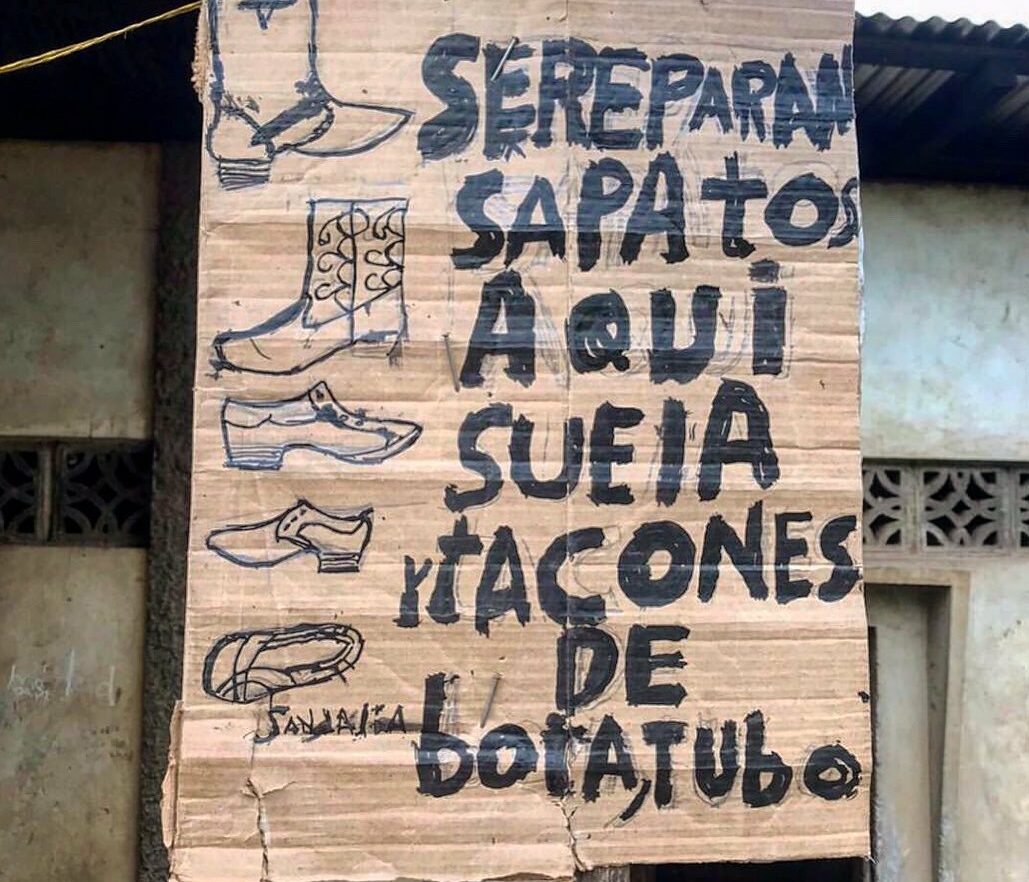 SEREPARAN
SAPAtOS
AQUi
SUEIA
YtACONES
DE
botA,TUbo
SANDALiA